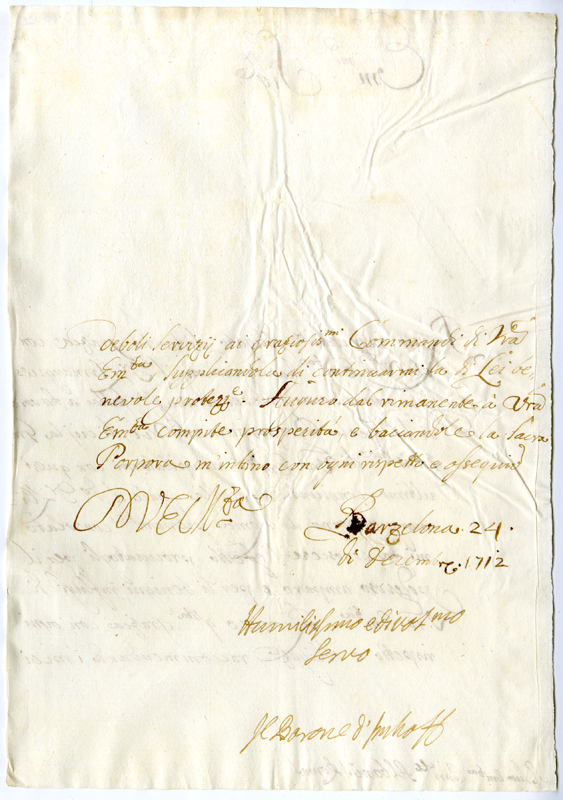 deboli servizij ai graziosis.mi Commandi di Vra
Em.za supplicandola di continuarmi la di Lei be-
nevole protez.e. Auguro dal rimanente à Vra
Em.za compite prosperità, e baciandole la Sacra
Porpora m'inkino con ogni rispetto e ossequio
D V Em.za
Barzelona 24.
di Decembre. 1712
Humilissimo e divot.mo
Servo
Il Barone d'Imhoff